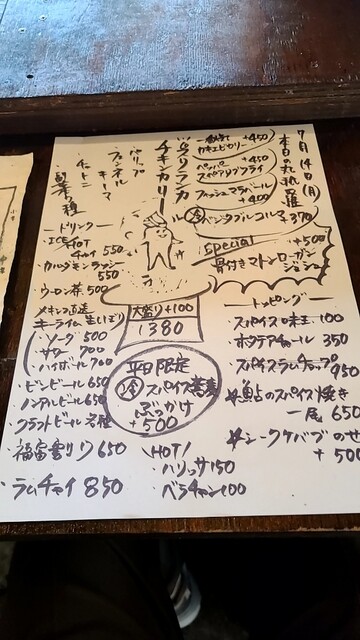 7月14日(月)
本日の丸執羅
+450
カキエビカリー
+450
ペッパー
スペアリブフライ
+400
フィッシュマラバール
ベジタブルコルマ 370
スリランカ
チキンカリー
バリップ
フェンネル
キーマ
チャトニ
副菜2種
Special
+500
骨付きマトンローガン
ジョシュ
大盛り+100
1380
平日限定
スパイス蕎麦
ぶっかけ
+500
ードリンクー
・ICE
HOT
チャイ 550
・カルダモンラッシー
550
・ウーロン茶 500
・メキシコ直送
キーライム(生しぼり)
・ソーダ 500
・サワー 700
・ハイボール 700
・ビンビール 650
・ノンアルビール 650
・クラフトビール 各種
・福富割り 650
・ラムチャイ 850
\HOT/
・ハリッサ 150
・ベラチャン 100
ートッピングー
・スパイス味玉 100
・ホタテアチャール 350
・スパイスラムチョップ 950
☆魚占のスパイス焼き
一尾 650
☆シークケバブのせ
+500